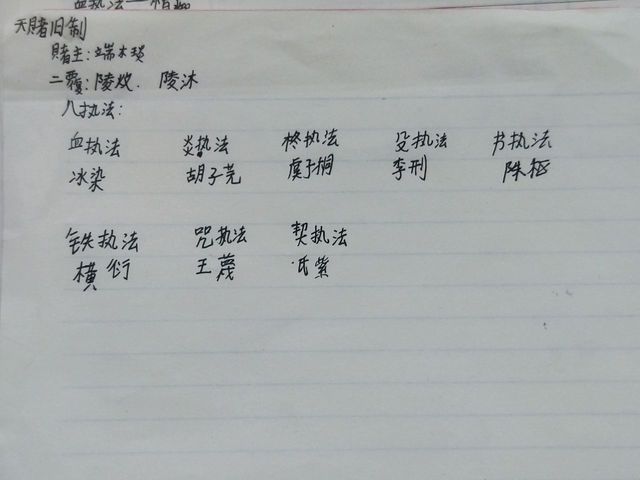 血执法——柏
天赌旧制
赌主：端木琐
二覆：陵炆．陵沐
八执法：
血执法 炎执法 柊执法 殳执法 书执法
冰染 胡子芫 虞子桐 李刑 陈枢
铁执法 咒执法 契执法
横衍 王蔑 氏紫